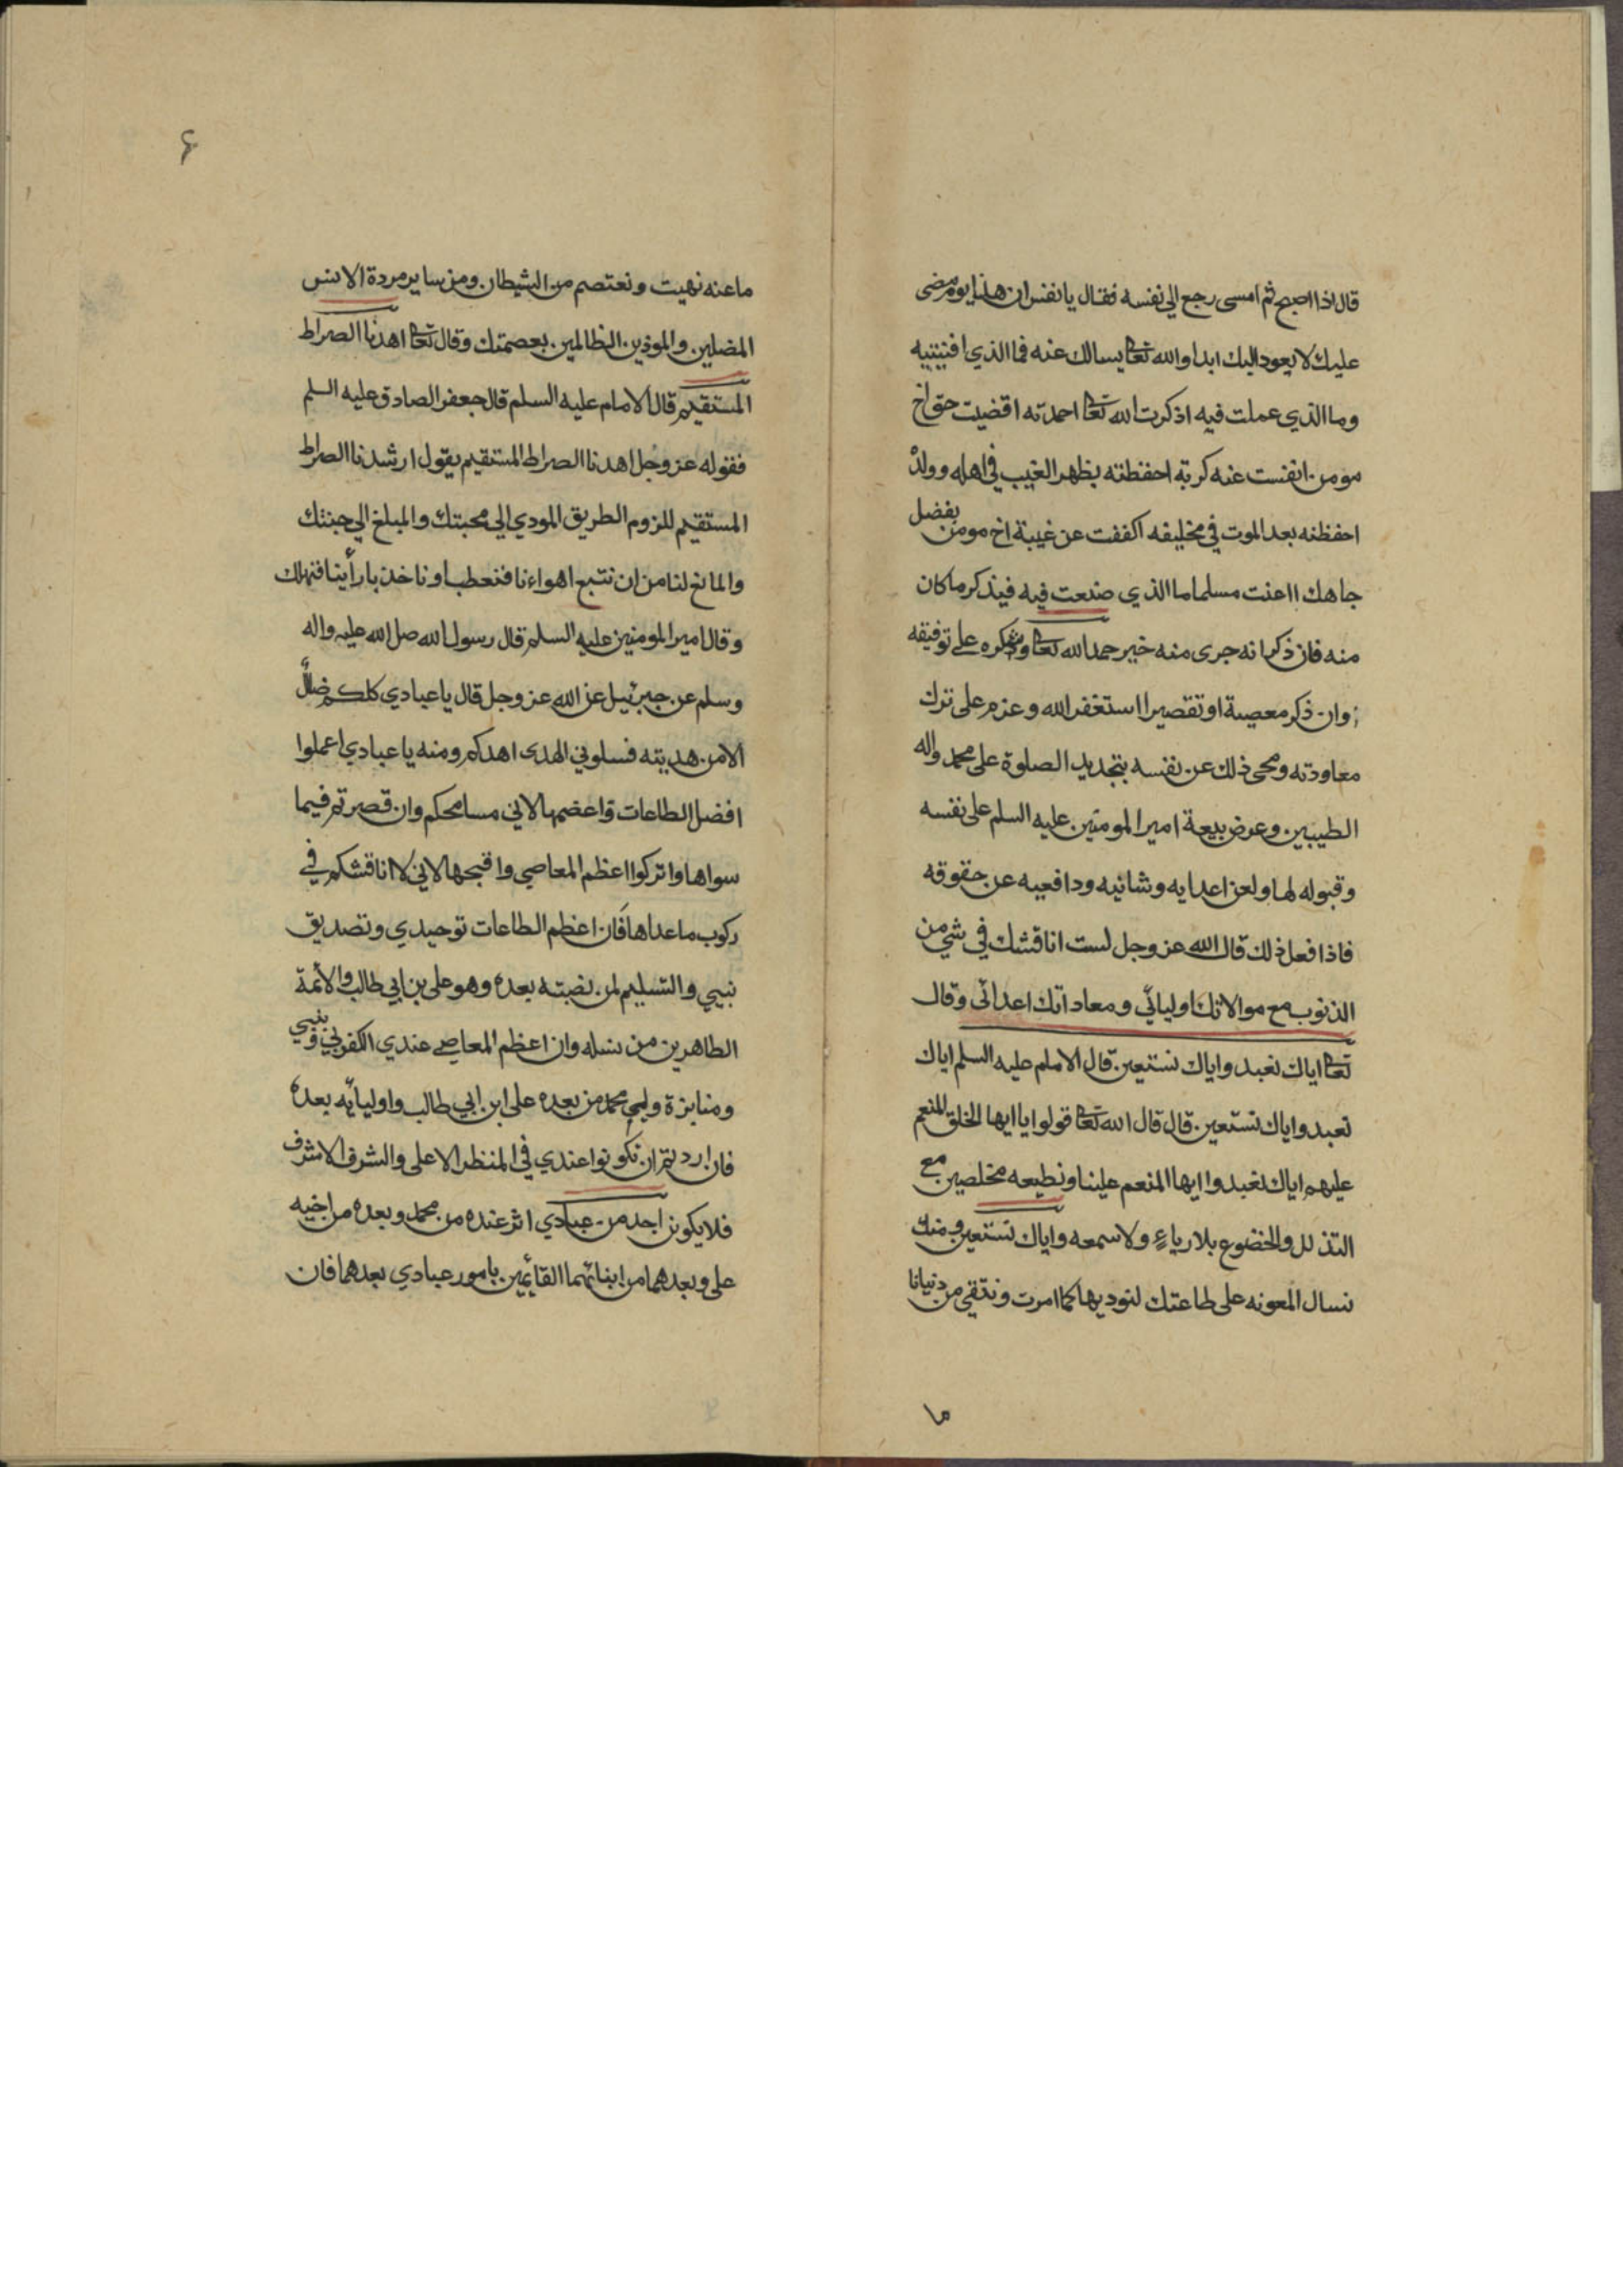 قال اذا اصبح ثم امسى رجع الى نفسه فقال يا نفس ان هذا يوم مضى
عليك لا يعود اليك ابدا والله تعا يسالك عنه فما الذي افنيتيه
وما الذي عملت فيه اذكرت الله تعا احمدته اقضيت حق اخ
مومن انفست عنه كربة احفظته بظهر الغيب في اهله وولده
احفظته بعد الموت في مخليفه اكففت عن غيبة اخ مومن بفضل
جاهك ااعنت مسلما ما الذي صنعت فيه فيذكر ما كان
منه فان ذكر انه جرى منه خير حمد الله تعا وشكره على توفيقه
وان ذكر معصية او تقصيرا استغفر الله وعزم على ترك
معاودته ومحى ذلك عن نفسه بتجديد الصلوة على محمد واله
الطيبين وعرض بيعة امير المومنين عليه السلم على نفسه
وقبوله لها ولعن اعدايه وشانيه ودافعيه عن حقوقه
فاذا فعل ذلك قال الله عز وجل لست اناقشك في شي من
الذنوب مع موالاتك اوليائي ومعاداتك اعدائي وقال
تعا اياك نعبد واياك نستعين قال الامام عليه السلم اياك
نعبد واياك نستعين قال قال الله تعا قولوا يا ايها الخلق المنعم
عليهم اياك نعبد وا ايها المنعم علينا ونطيعه مخلصين مع
التذلل والخضوع بلا رياءٍ ولا سمعه واياك نستعين ومنك
نسال المعونه على طاعتك لنوديها كما امرت ونتقي من دنيانا
ما
۶
ما عنه نهيت ونعتصم من الشيطان ومن ساير مردة الانس
المضلين والموذين الظالمين بعصمتك وقال تعا اهدنا الصراط
المستقيم قال الامام عليه السلم قال جعفر الصادق عليه السلم
فقوله عز وجل اهدنا الصراط المستقيم يقول ارشدنا الصراط
المستقيم للزوم الطريق المودي الى محبتك والمبلغ الي جنتك
والمانع لنا من ان نتبع اهواءنا فنعطب او ناخذ بارأينا فنهلك
وقال امير المومنين عليه السلم قال رسول الله صل الله عليه واله
وسلم عن جبرئيل عن الله عز وجل قال يا عبادي كلكم ضالٌّ
الا من هديته فسلوني الهدى اهدكم ومنه يا عبادي اعملوا
افضل الطاعات واعضمها لاني مسامحكم وان قصرتم فيما
سواها واتركوا اعظم المعاصي واقبحها لاني لا اناقشكم في
ركوب ما عداها فان اعظم الطاعات توحيدي وتصديق
نبيي والتسليم لمن نصبته بعده وهو علي بن ابي طالب والأئمة
الطاهرين من نسله وان اعظم المعاصي عندي الكفر بي وبنبيي
ومنابزة ولي محمد من بعده على ابن ابي طالب واوليائه بعده
فان اردتم ان تكونوا عندي في المنظر الاعلى والشرف الاشرف
فلا يكونن احد من عبادي اثر عنده من محمد وبعده من اخيه
علي وبعدهما من ابنائهما القائمين بامور عبادي بعدهما فان